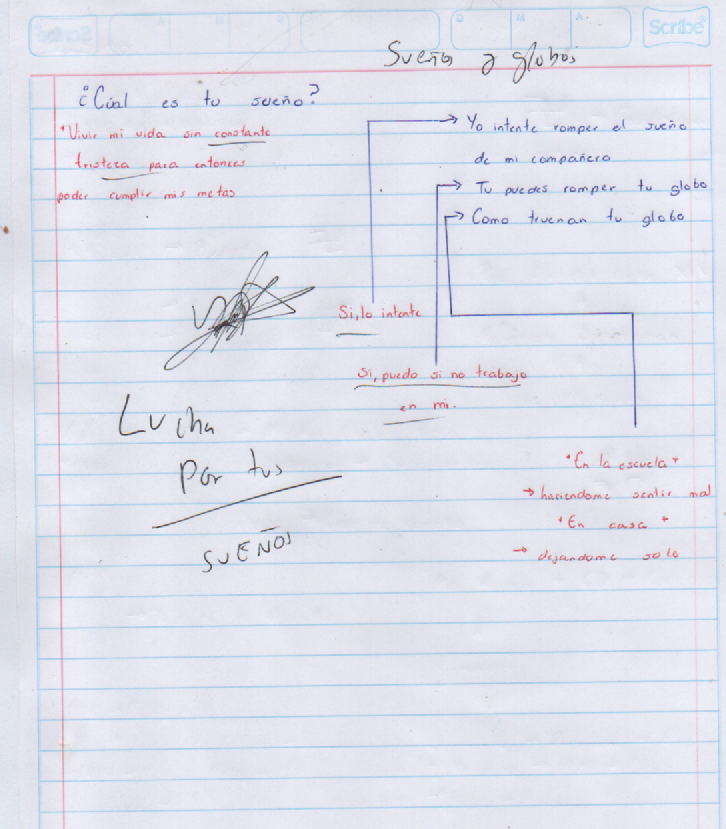 Scribe
D M A
Sueños y globos
¿Cúal es tu sueño?
*Vivir mi vida sin constante
tristeza para entonces
poder cumplir mis metas
→ Yo intente romper el sueño
de mi compañero
→ Tu puedes romper tu globo
→ Como truenan tu globo
Si, lo intente
Si, puedo si no trabajo
en mi.
Lucha
por tus
SUEÑOS
*En la escuela*
→ haciendome sentir mal
*En casa*
→ dejandome solo